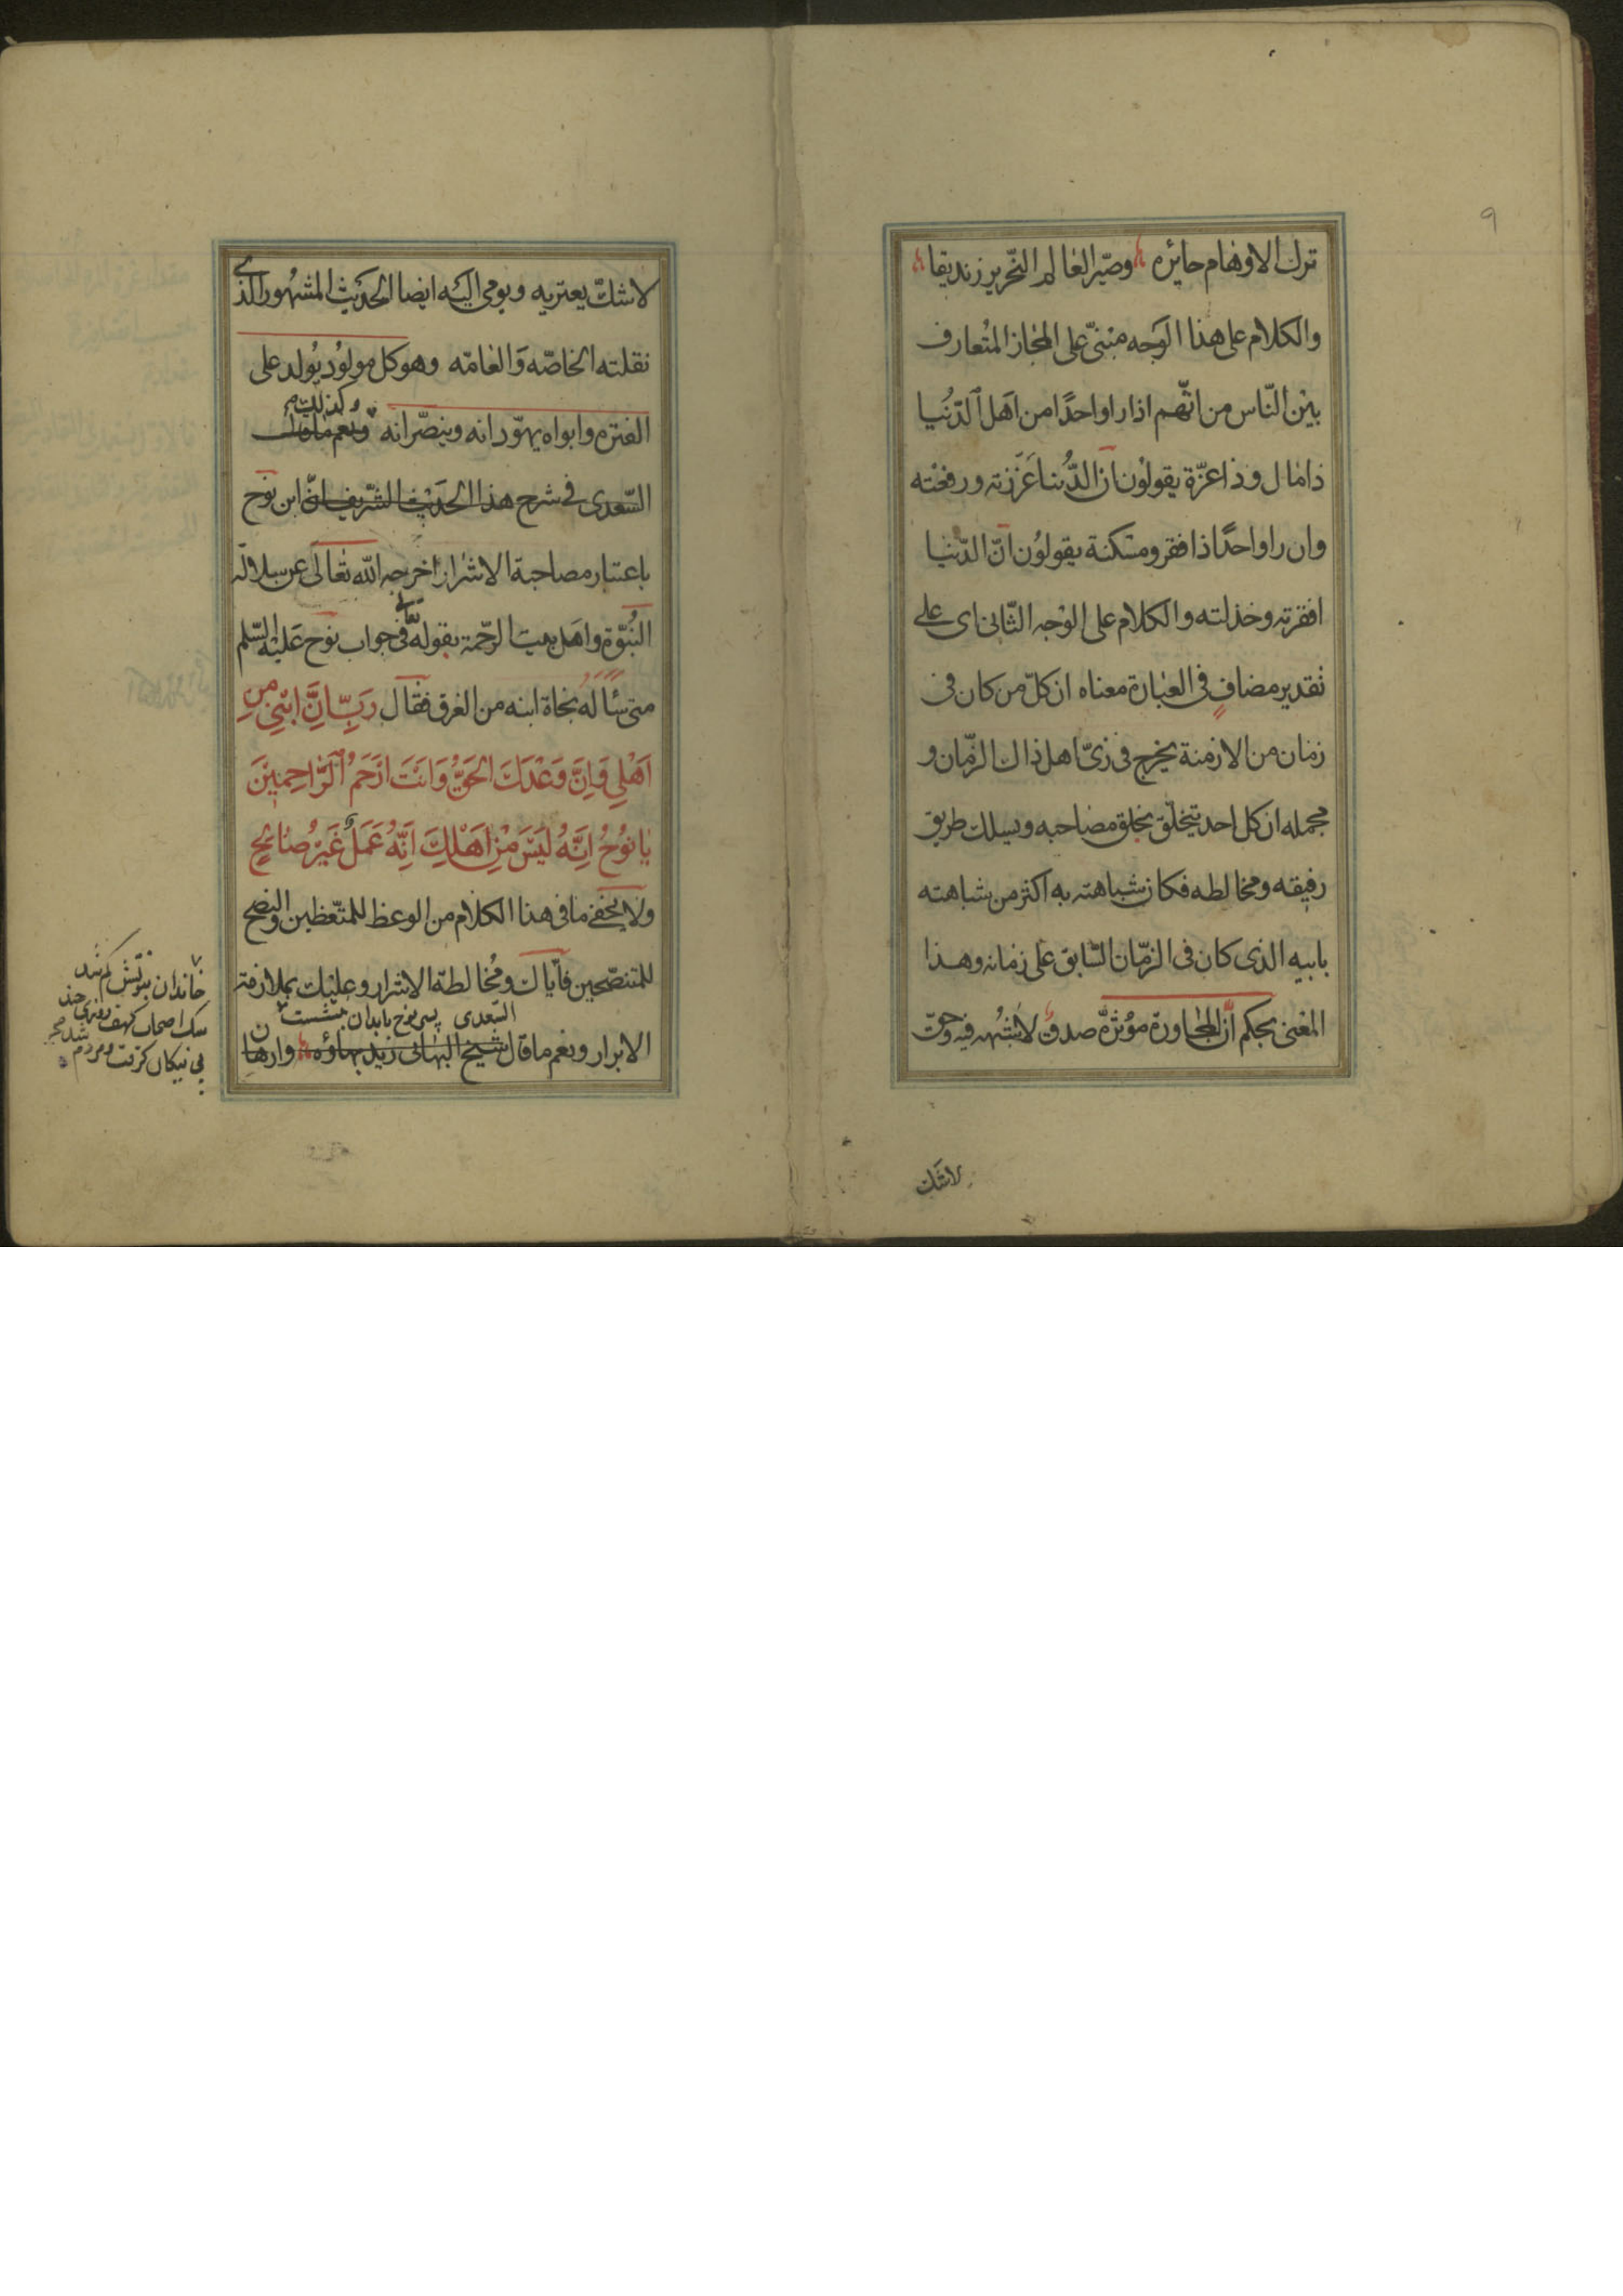 ۹
ترك الاوهام حائره وصيّر العالم النحّرير زنديقا
والكلام على هذا الوجه مبنىّ على المجاز المتُعارف
بين النّاس من انّهم اذا راوا واحدًا من اهل الدّنُيا
ذا مال وذا عزّة يقولوُن انّ الدّنُيا عَزّزته ورفعته
وان راوا واحدًا ذا فقر ومسكنة يقولوُن انّ الدّنيا
افقرته وخذلته والكلام على الوجه الثّانى اى على
تقدير مضافٍ فى العبارة معناه ان كلّ من كان فى
زمان من الازمنة يخرج فى زىّ اهل ذاك الزّمان و
مجمله ان كل احد يتخلّق بخلق مصاحبه ويسلك طريق
رفيقه ومخالطه فكان شباهته به اكثر من شباهته
بابيه الذى كان فى الزمّان السّابق على زمانه وهذا
المعنى بحكم انّ المجاورة مؤثرّة صدق لا يشُبّه فيه وحقّ
لاشك
لا شكّ يعتريه ويومى اليَه ايضا الحَديث المشهُور الذى
نقلته الخاصّه وَالعامّه وهو كل مولوُد يوُلد على
الفترة وابواه يهوّدانه وينصّرانه ونعم ما قال
وكذلك
السّعدى فى شرح هذا الحَديث الشّريف انّ ابن نوح
باعتبار مصاحبة الاشرار اخرجه الله تعالى عن سلالة
النّبُوّة واهل بيت الرّحمة بقوله تعالى فى جواب نوح عَليْه السّلم
متى سأله نجاة ابنه من الغرق فقال رَبِّ اِنَّ ابْنِي مِنِ
اَهْلِي وَاِنَّ وَعْدَكَ الحَقُّ وَانَتَ ارَحَمُ الرَّاحِمِيْنَ
يا نوُحُ اِنَّهُ لَيسَ مْنِ اَهْلِكَ اِنَّهُ عَمَلٌ غَيْرُ صَالِحٍ
ولا يخفى ما فى هذا الكلام من الوعظ للمتّعظين والنصح
للمتنصّحين فايّاك ومُخالطة الاشرار وعليْك بملازمة
السّعدى پسر نوح با بدان بنشست
الابرار ونعم ما قال شيخ البهائى زيد بهاؤه وارهان
خاندان نبوّتش گم شد
سك اصحاب كهف روزى چند
پى نيكان گرفت و مردم شد